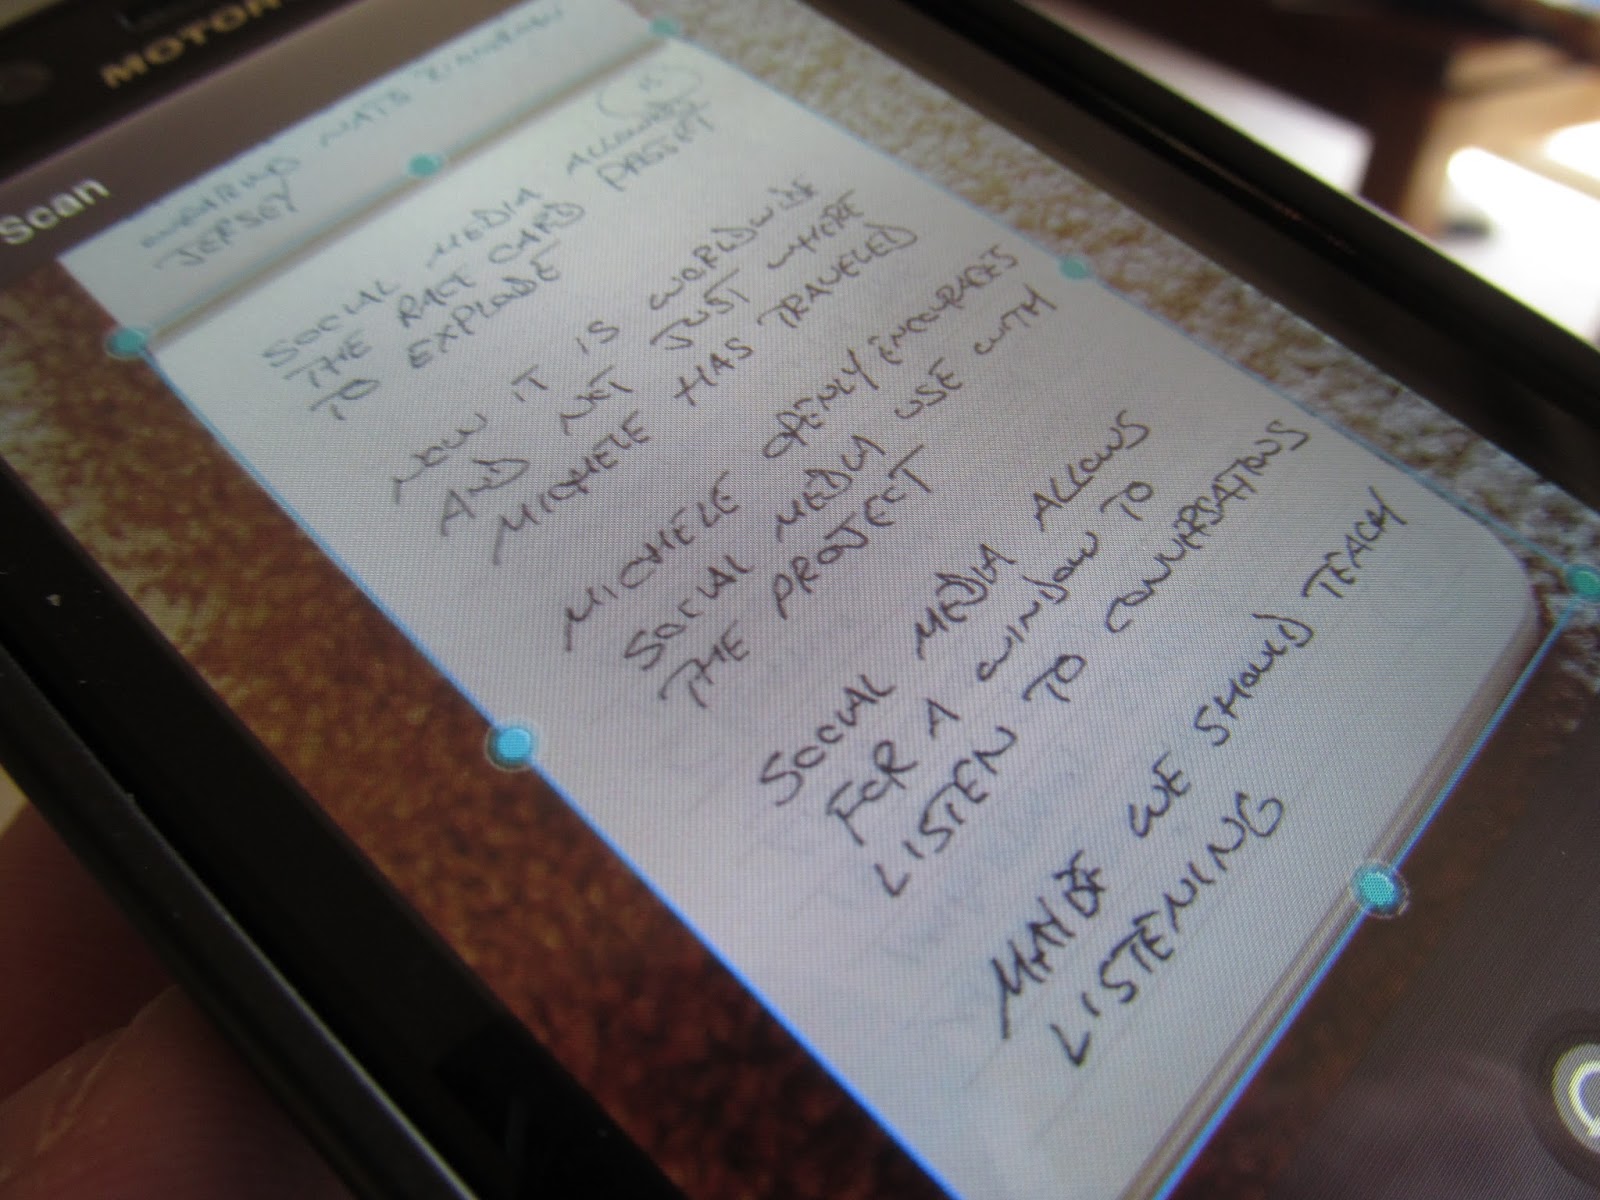 MOTOR
Scan
WEARING NATS ZIMMERMAN
JERSEY
SOCIAL MEDIA ALLOWED
THE RACE CARD PROJECT
TO EXPLODE
NOW IT IS WORLDWIDE
AND NOT JUST WHERE
MICHELE HAS TRAVELED
MICHELE OPENLY ENCOURAGES
SOCIAL MEDIA USE WITH
THE PROJECT
SOCIAL MEDIA ALLOWS
FOR A WINDOW TO
LISTEN TO CONVERSATIONS
MAYBE WE SHOULD TEACH
LISTENING